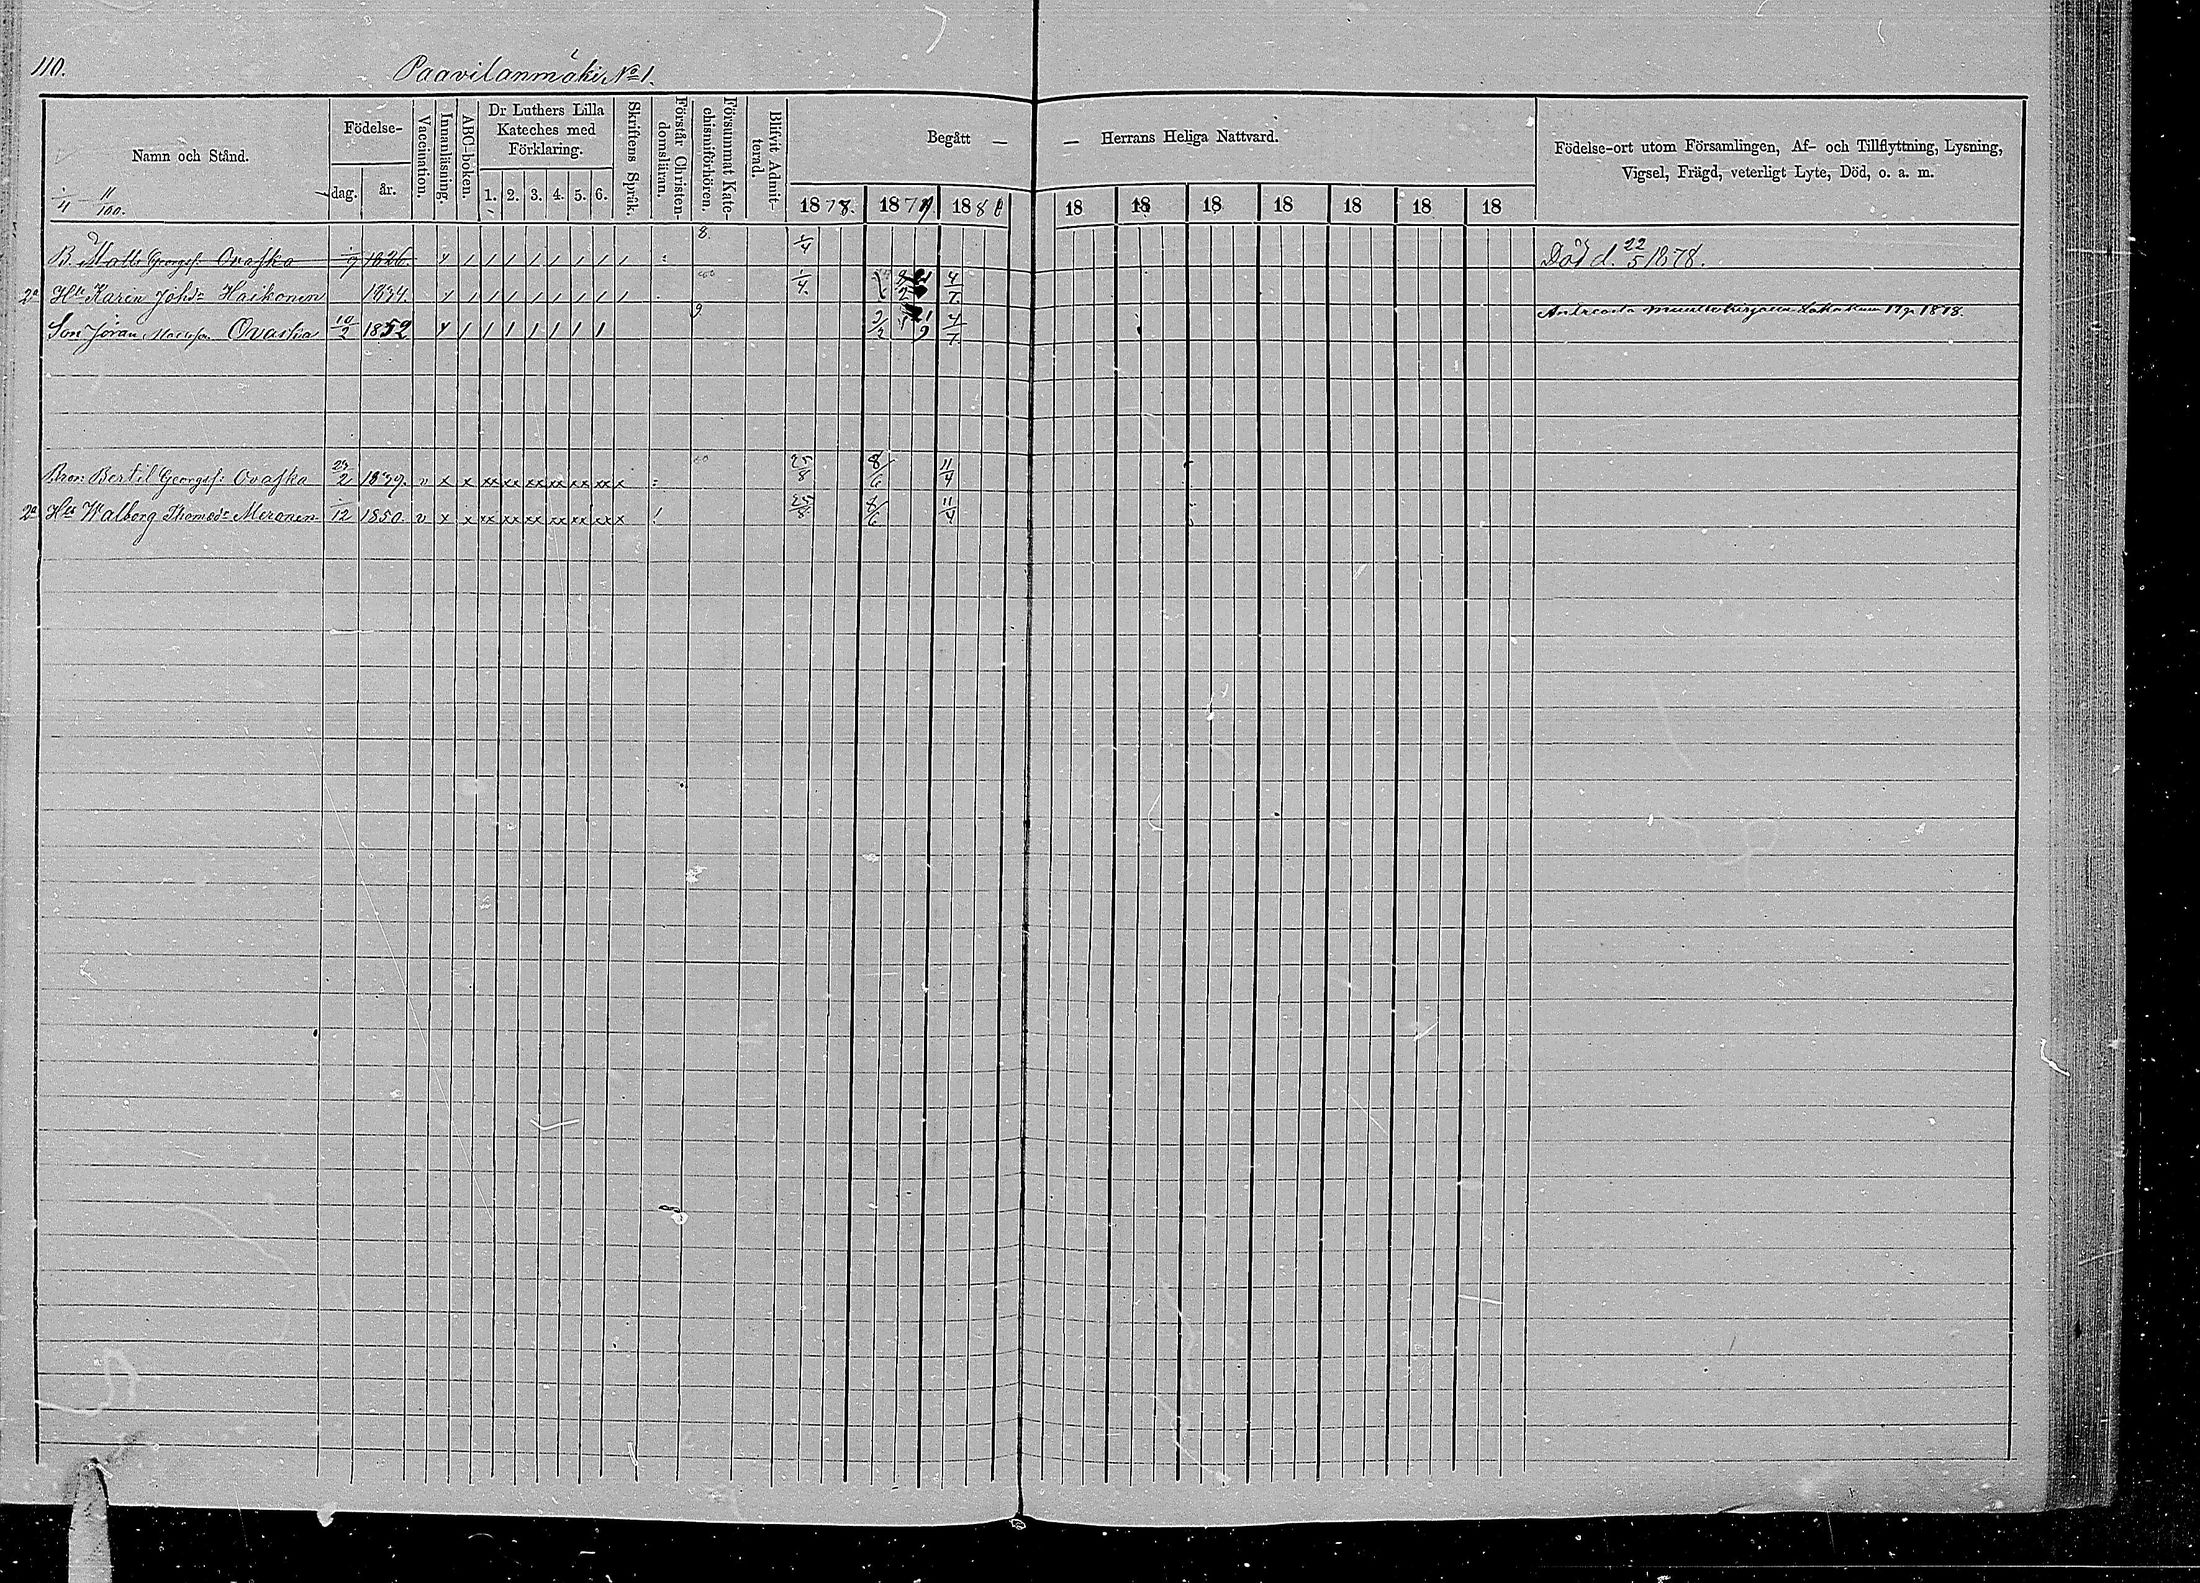 110.
Paavilanmäki No 1.
Namn och Stånd.
Födelse-
dag.
år.
Vaccination.
Innanläsning.
ABC-boken.
Dr Luthers Lilla
Kateches med
Förklaring.
1. 2. 3. 4. 5. 6.
Skriftens Språk.
Förstår Christen-
domsläran.
Försummat Kate-
chismiförhören.
Blifvit Admit-
terad.
Begått — — Herrans Heliga Nattvard.
1878. 1879 188 18 18 18 18 18 18 18
Födelse-ort utom Församlingen, Af- och Tillflyttning, Lysning,
Vigsel, Frägd, veterligt Lyte, Död, o. a. m.
1/11 — 11/100.
B. Matts Georgsf: Ovaska 1826. 8. 1/4 Död d. 22/5 1878.
2a Hu Karin Johsdr Haikonen 1834. 1/4. 4/7.
Son Jöran Ovaska 10/2 1852 9 2/2 4/7. 1878.
Bror: Bertil Georgsf: Ovaska 1839. v x x xx xx xx xx xx xx x : 25/8 8/6 11/4
2a Hu Walborg Thomasdr Mironen /12 1850. v x x xx xx xx xx xx xx x ! 25/8 7/6 11/4